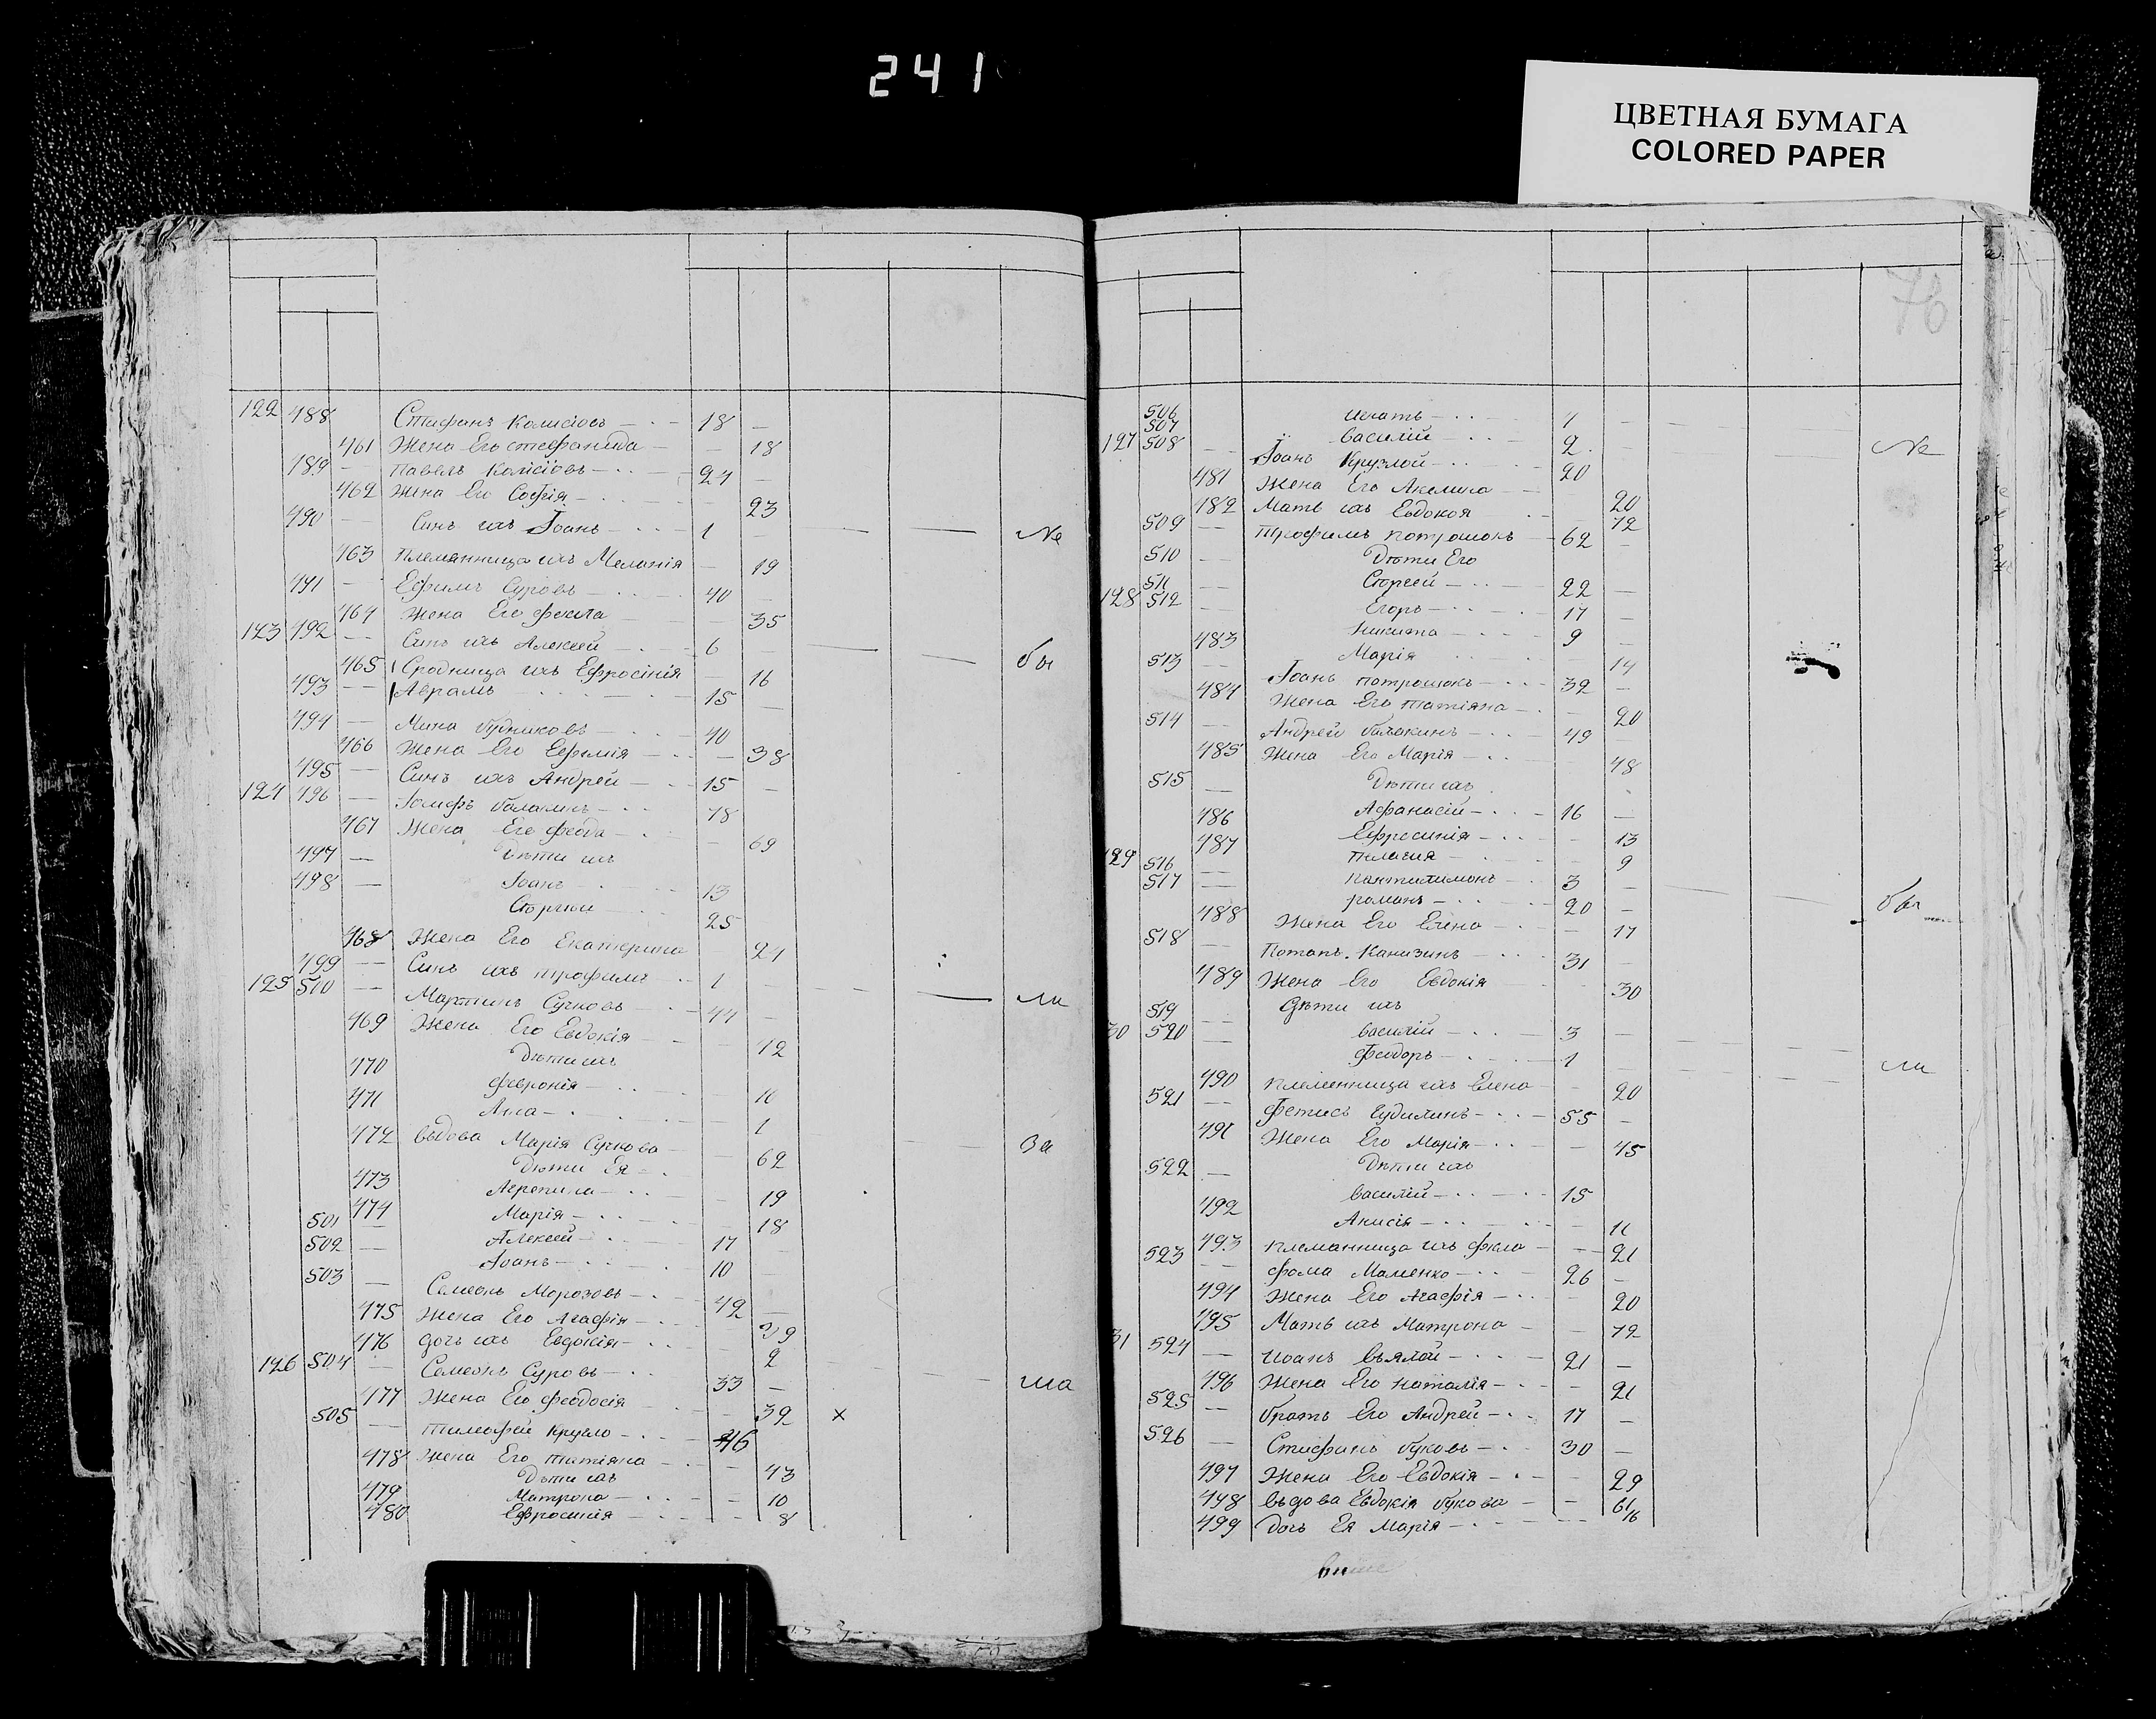 241
ЦВЕТНАЯ БУМАГА
COLORED PAPER
76
122 488 Стифанъ Колисіовъ 18
461 Жена Его стефанида 18
189 Павелъ Колісіовъ 24
462 Жена Его Софія 23
490 Синъ ихъ Іоанъ 1
463 Племянница ихъ Меланія 19
491 Ефимъ Суровъ 40
464 Жена Его фекла 35
123 492 Синъ ихъ Алексей 6
465 Сродница ихъ Ефросінія 16
493 Аврамъ 15
494 Мина будниковъ 40
466 Жена Его Ефимія 38
495 Синъ ихъ Андрей 15
124 496 Іосифъ 78
467 Жена Его феода 69
497 Дѣти ихъ
498 Іоанъ 13
Сторгіи 25
468 Жена Его Екатерина 24
499 Синъ ихъ трофимъ 1
125 510 Мартинъ Сучковъ 44
469 Жена Его Евдокія 42
470 Дѣти ихъ
февронія 10
471 Ана 1
472 вьдова Марія Сучкова 62
Дѣти Ея
473 Агрепина 19
474 Марія 18
501 Алексей 17
502 Іоанъ 10
503 Семеонъ Морозовъ 42
475 Жена Его Агафія 39
476 дочь ихъ Евдокія 2
126 504 Семеонъ Суровъ 33
477 Жена Его феодосія 32 х
505 тимофей кругло 46
478 Жена Его татіяна 43
Дѣти ихъ
479 Матрона 10
480 Ефросинія 8
506 игнатъ 7
507 василій 2
127 508 Іоанъ Круглой 20
481 Жена Его Акелина 20
482 Мать ихъ Евдокоя 72
509 Трофимъ потрошокъ 62
510 Дѣти Его
511 Сторгей 22
128 512 Егоръ 17
Никита 9
483 Марія 14
513 Іоанъ потрошокъ 32
484 Жена Его татіяна 20
514 Андрей балакинъ 49
485 Жена Его Марія 48
515 Дѣти ихъ
Афанасій 16
486 Ефросинія 13
487 Пилагия 9
129 516 Пантилимонъ 3
517 романъ 20
488 Жена Его Елена 17
518 Потапъ Канизинъ 31
489 Жена Его Евдокія 30
519 Дѣти ихъ
30 520 василій 3
феодоръ 1
490 племянница ихъ Елена 20
521 фетисъ Еудилинъ 55
491 Жена Его Марія 45
522 Дѣти ихъ
василій 15
492 Анисія 11
493 племянница ихъ фкла 21
523 фома Маменко 26
494 Жена Его Агафія 20
495 Мать ихъ Матрона 72
31 524 Иоанъ вьялой 21
496 Жена Его наталія 21
525 братъ Его Андрей 17
526 Стифанъ буковъ 30
497 Жена Его Евдокія 29
498 вьдова Евдокія букова 61
499 дочь Ея Марія 16